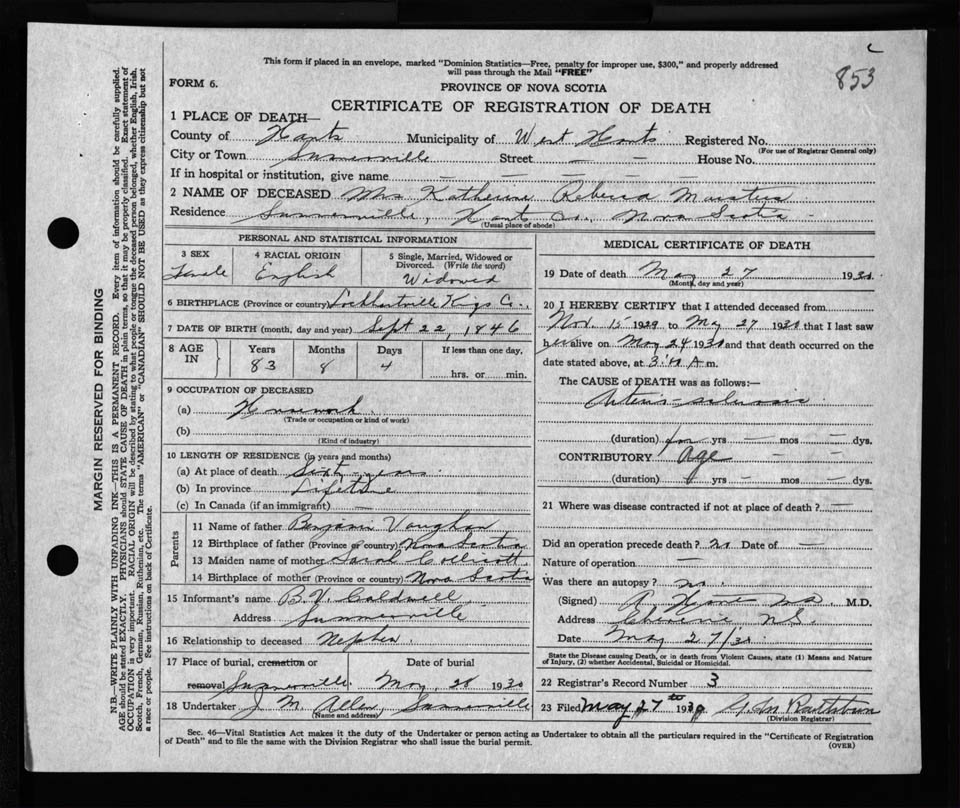 853
This form if placed in an envelope, marked "Dominion Statistics—Free, penalty for improper use, $300," and properly addressed
will pass through the Mail "FREE"
FORM 6.
PROVINCE OF NOVA SCOTIA
CERTIFICATE OF REGISTRATION OF DEATH
1 PLACE OF DEATH—
County of Hants Municipality of West Hants Registered No.
(For use of Registrar General only)
City or Town Summerville Street — — House No.
If in hospital or institution, give name — — — — — —
2 NAME OF DECEASED Mrs Katherine Rebecca
Residence Summerville, Hants Co., Nova Scotia
(Usual place of abode)
PERSONAL AND STATISTICAL INFORMATION
3 SEX 4 RACIAL ORIGIN 5 Single, Married, Widowed or
Divorced. (Write the word)
Female English Widowed
6 BIRTHPLACE (Province or country) Lockhartville Kings Co.
7 DATE OF BIRTH (month, day and year) Sept 22, 1846
8 AGE IN Years Months Days If less than one day,
83 8 4 hrs. or min.
9 OCCUPATION OF DECEASED
(a) Housework
(Trade or occupation or kind of work)
(b)
(Kind of industry)
10 LENGTH OF RESIDENCE (in years and months)
(a) At place of death Sixty years
(b) In province Lifetime
(c) In Canada (if an immigrant) —
Parents
11 Name of father Benjamin Vaughan
12 Birthplace of father (Province or country) Nova Scotia
13 Maiden name of mother Sarah
14 Birthplace of mother (Province or country) Nova Scotia
15 Informant's name B. V. Caldwell
Address Summerville
16 Relationship to deceased Nephew
17 Place of burial, cremation or Date of burial
removal Summerville May 28 1930
18 Undertaker J. M. Allen, Summerville
(Name and address)
MEDICAL CERTIFICATE OF DEATH
19 Date of death May 27 1930
(Month, day and year)
20 I HEREBY CERTIFY that I attended deceased from
Nov. 15 1929 to May 27 1930 that I last saw
her alive on May 24 1930 and that death occurred on the
date stated above, at A m.
The CAUSE of DEATH was as follows:—
Arterio-sclerosis
(duration) yrs — mos — dys.
CONTRIBUTORY Age
(duration) yrs — mos — dys.
21 Where was disease contracted if not at place of death? —
Did an operation precede death? no Date of —
Nature of operation —
Was there an autopsy? no
(Signed) M.D.
Address N.S.
Date May 27/30
State the Disease causing Death, or in death from Violent Causes, state (1) Means and Nature
of Injury, (2) whether Accidental, Suicidal or Homicidal.
22 Registrar's Record Number 3
23 Filed May 27th 1930
(Division Registrar)
Sec. 46—Vital Statistics Act makes it the duty of the Undertaker or person acting as Undertaker to obtain all the particulars required in the "Certificate of Registration
of Death" and to file the same with the Division Registrar who shall issue the burial permit.
(OVER)
MARGIN RESERVED FOR BINDING
N.B.—WRITE PLAINLY WITH UNFADING INK—THIS IS A PERMANENT RECORD. Every item of information should be carefully supplied.
AGE should be stated EXACTLY. PHYSICIANS should STATE CAUSE OF DEATH in plain terms, so that it may be properly classified. Exact statement of
OCCUPATION is very important. RACIAL ORIGIN will be described by stating to what people or tongue the deceased person belonged, whether English, Irish,
Scotch, French, German, Russian, Ruthenian, etc. The terms "AMERICAN" or "CANADIAN" SHOULD NOT BE USED as they express citizenship but not
a race or people. See instructions on back of Certificate.